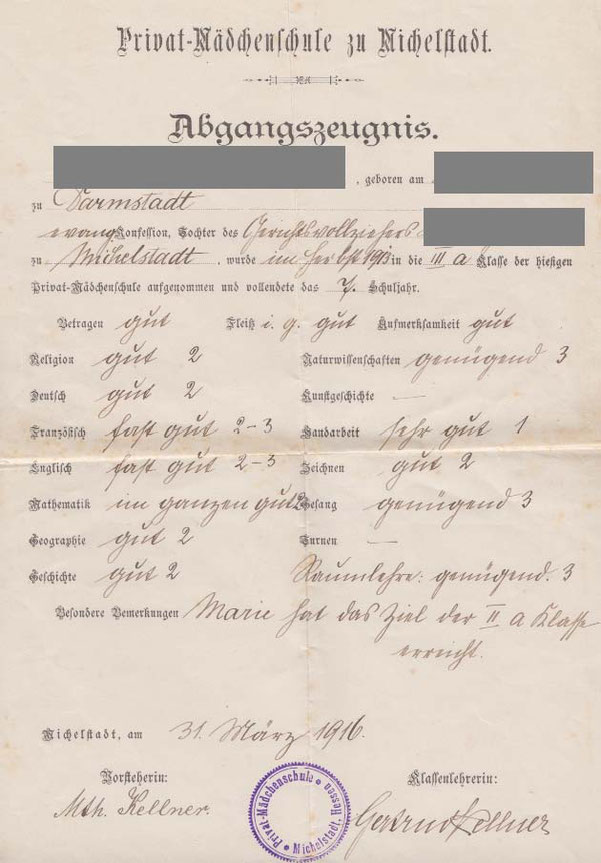 Privat-Mädchenschule zu Michelstadt.
Abgangszeugnis.
, geboren am
zu Darmstadt
evang. Konfession, Tochter des Gerichtsvollziehers
zu Michelstadt, wurde im Herbst 1913 in die III a Klasse der hiesigen
Privat-Mädchenschule aufgenommen und vollendete das 7. Schuljahr.
Betragen gut Fleiß i. g. gut Aufmerksamkeit gut
Religion gut 2 Naturwissenschaften genügend 3
Deutsch gut 2 Kunstgeschichte —
Französisch fast gut 2-3 Handarbeit sehr gut 1
Englisch fast gut 2-3 Zeichnen gut 2
Mathematik im ganzen gut 2 Gesang genügend 3
Geographie gut 2 Turnen —
Geschichte gut 2 Raumlehre: genügend. 3
Besondere Bemerkungen Marie hat das Ziel der II a Klasse
erreicht.
Michelstadt, am 31. März 1916.
Vorsteherin: Klassenlehrerin:
Mth. Kellner. Gertrud Kellner
Privat-Mädchenschule • Michelstadt, Hessen •